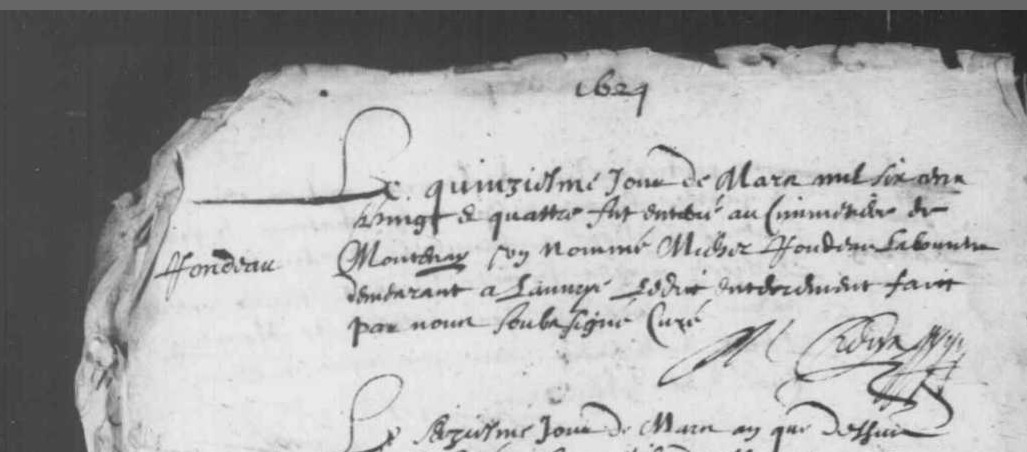 1624
Le quinziesme Jour de Mars mil six cens
vingt & quattre fut enterré au Cimmetiere de
ffondeau
Montenay un nommé Micher ffondeau Laboureur
demeurant a Launay Ledict enterrement faict
par nous soubz signé Curé
Le seziesme Jour de Mars an que dessus